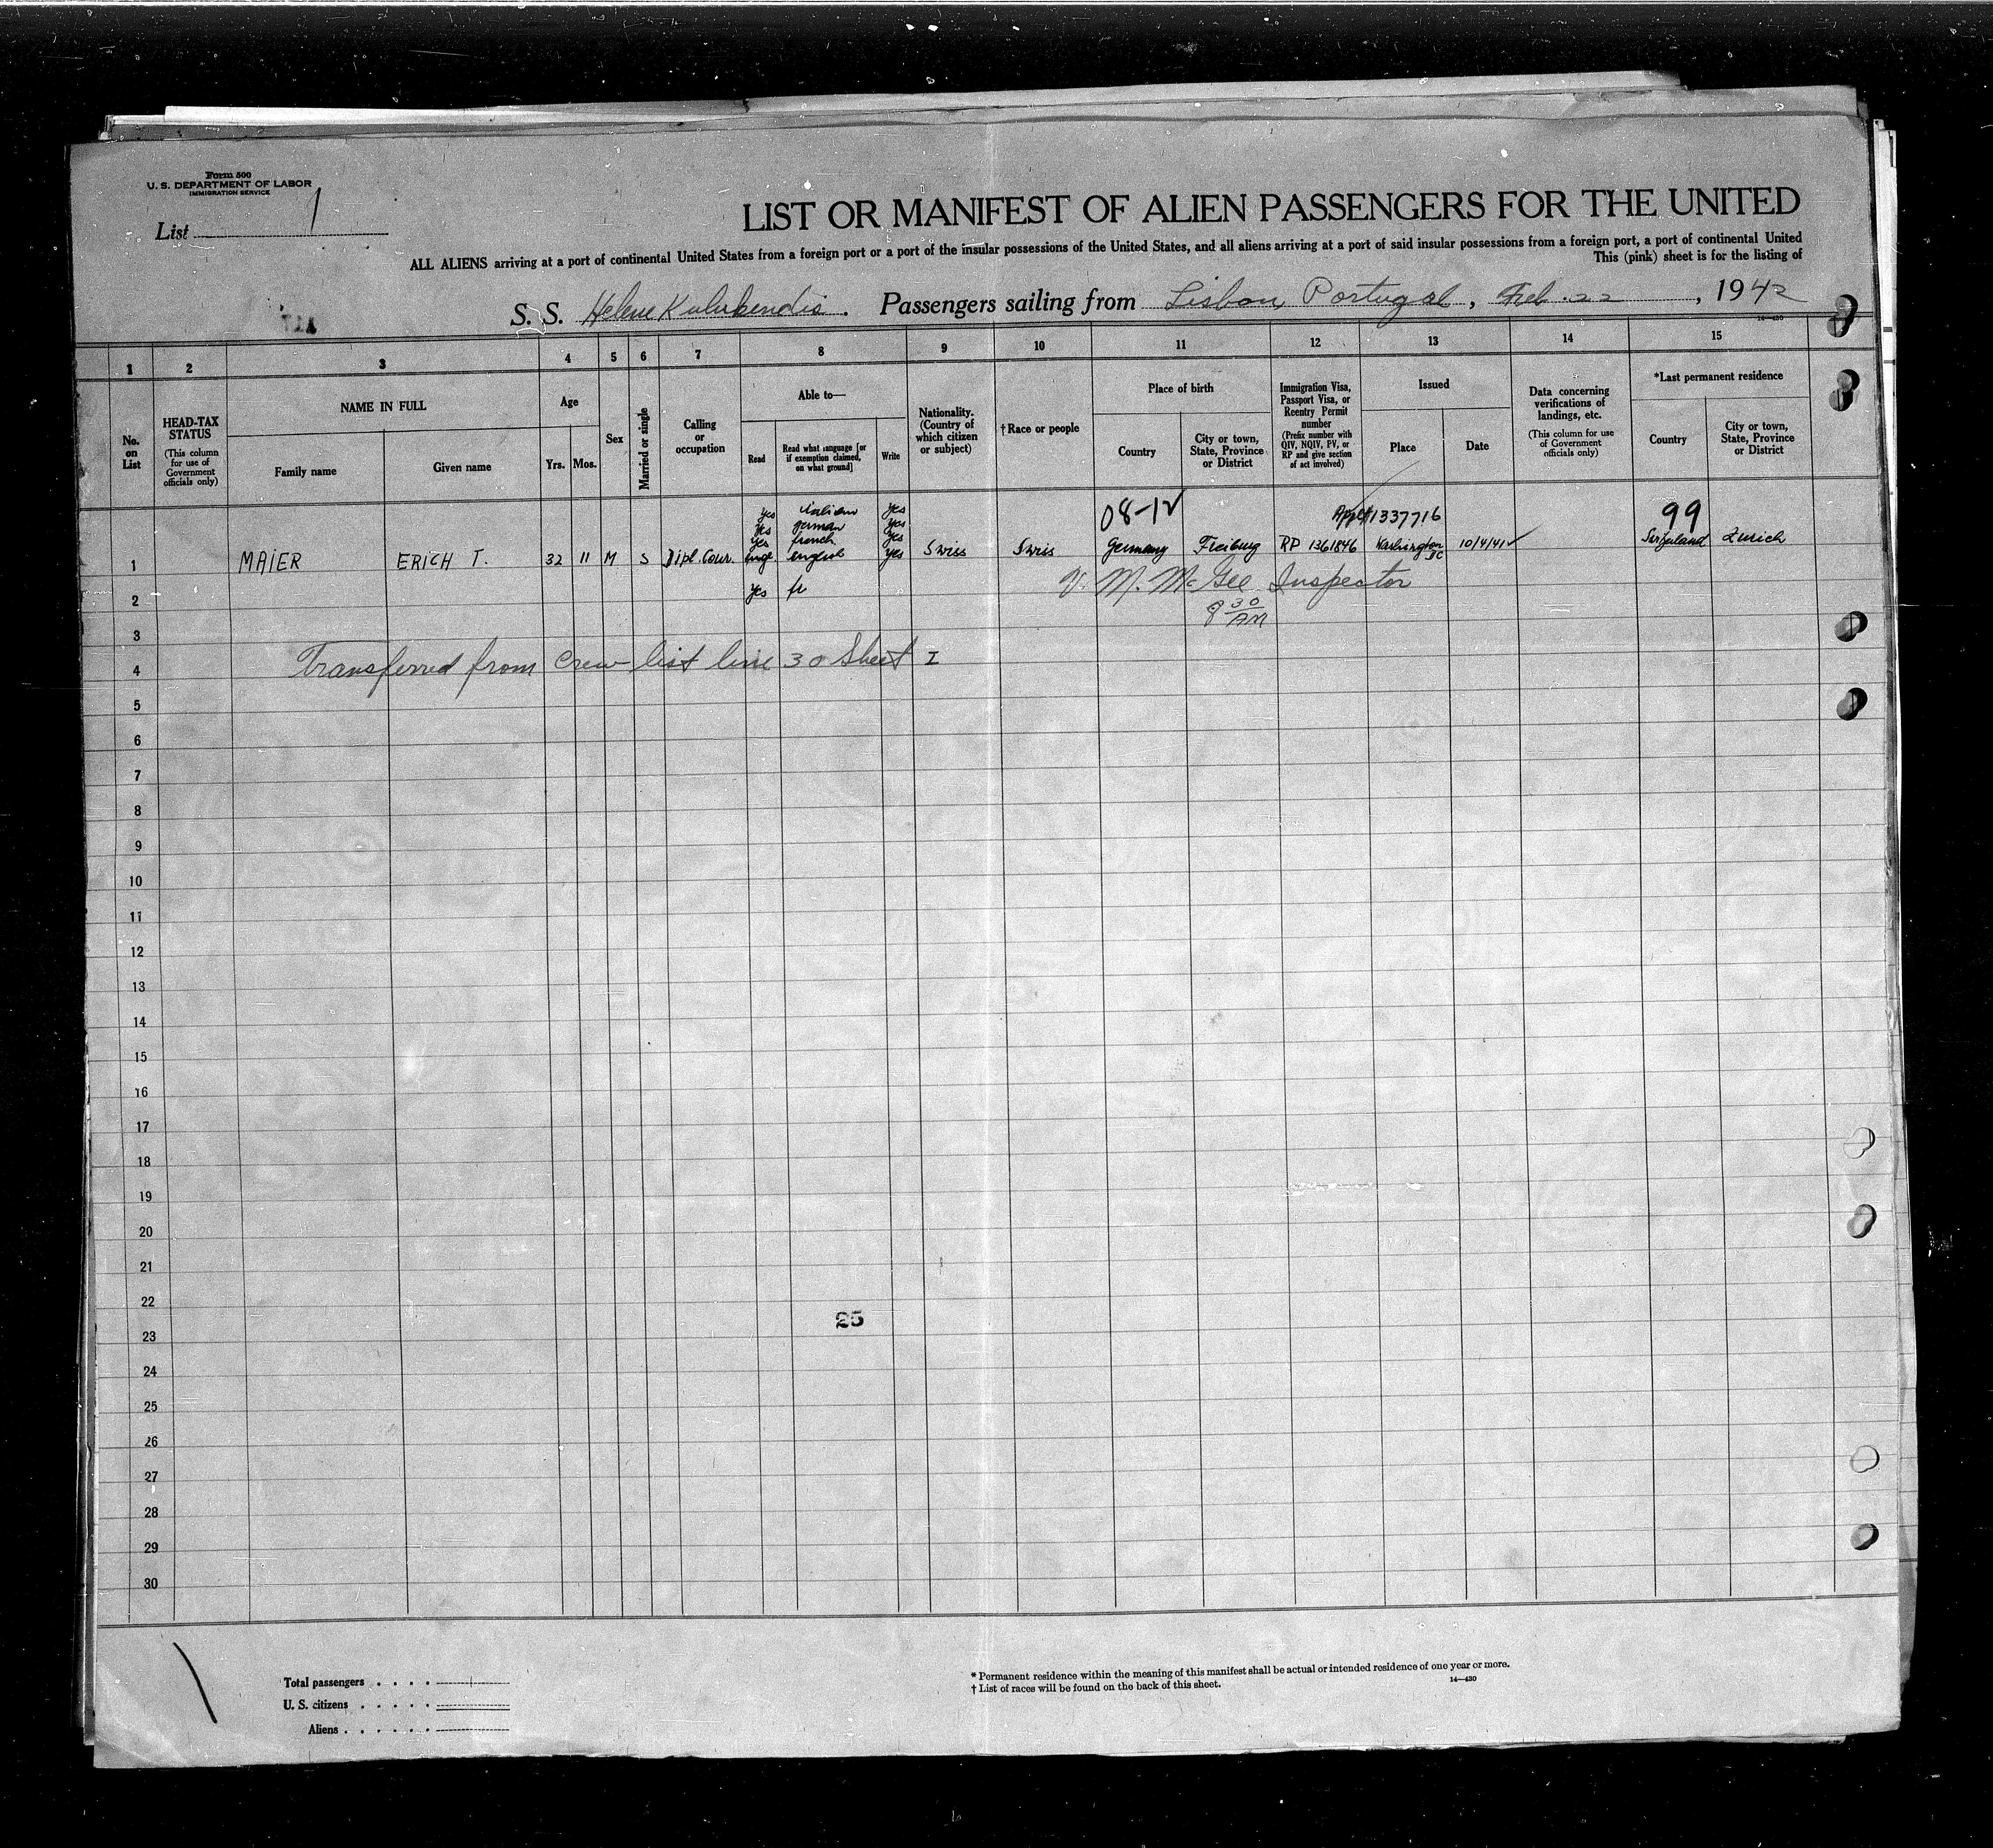 Form 500
U. S. DEPARTMENT OF LABOR
IMMIGRATION SERVICE
List 1
LIST OR MANIFEST OF ALIEN PASSENGERS FOR THE UNITED
ALL ALIENS arriving at a port of continental United States from a foreign port or a port of the insular possessions of the United States, and all aliens arriving at a port of said insular possessions from a foreign port, a port of continental United
This (pink) sheet is for the listing of
S. S. Helene Kulukundis. Passengers sailing from Lisbon, Portugal, Feb. 22, 1942
14—430
1 2 3 4 5 6 7 8 9 10 11 12 13 14 15
No. on List
HEAD-TAX STATUS
(This column for use of Government officials only)
NAME IN FULL
Family name
Given name
Age
Yrs. Mos.
Sex
Married or single
Calling or occupation
Able to—
Read
Read what language [or if exemption claimed, on what ground]
Write
Nationality. (Country of which citizen or subject)
†Race or people
Place of birth
Country
City or town, State, Province or District
Immigration Visa, Passport Visa, or Reentry Permit number
(Prefix number with QIV, NQIV, PV, or RP and give section of act involved)
Issued
Place
Date
Data concerning verifications of landings, etc.
(This column for use of Government officials only)
*Last permanent residence
Country
City or town, State, Province or District
yes italian yes
yes german yes
yes french yes
08-12
Appl#1337716
99
1 MAIER ERICH T. 32 11 M S Dipl. Cour. engl. english yes Swiss Swiss Germany Freiburg RP 1361846 Washington DC 10/4/41 Switzerland Zurich
2 yes fr
V. M. McGee Inspector
8 30 AM
3
4 Transferred from Crew list line 30 Sheet I
5
6
7
8
9
10
11
12
13
14
15
16
17
18
19
20
21
22
25
23
24
25
26
27
28
29
30
Total passengers . . . . 1
U. S. citizens . . . . .
Aliens . . . . . .
* Permanent residence within the meaning of this manifest shall be actual or intended residence of one year or more.
† List of races will be found on the back of this sheet.
14—430